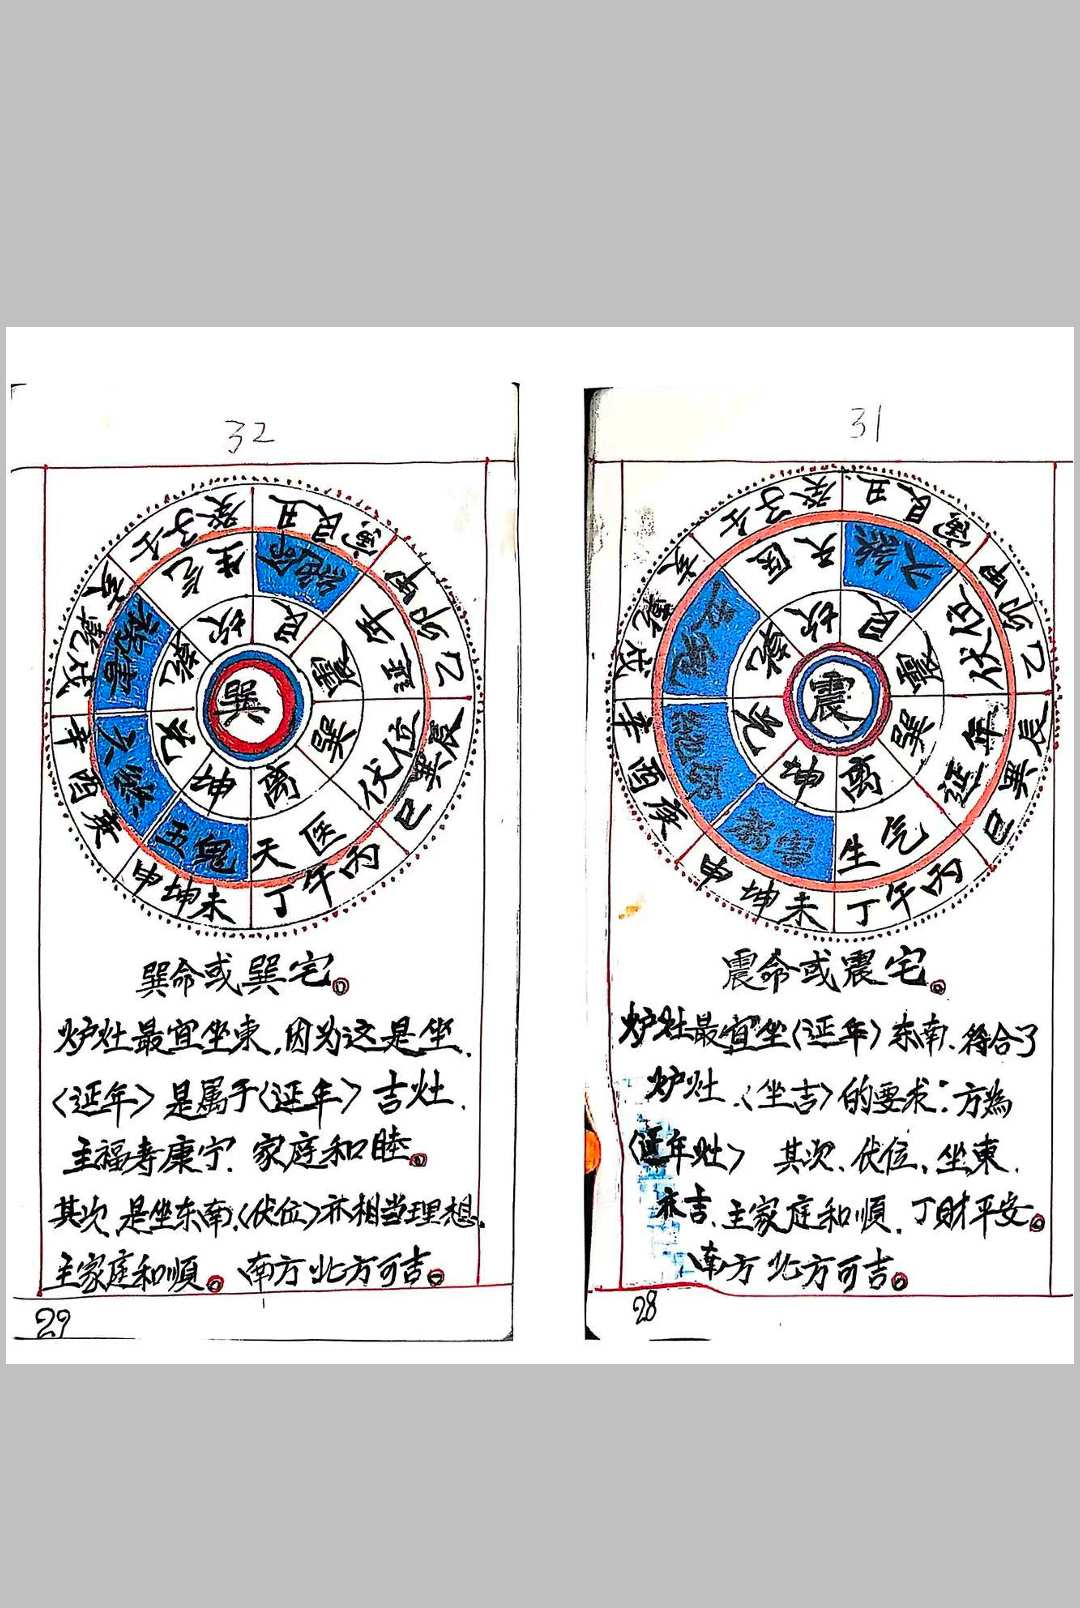 32
癸子壬
丑艮寅
甲卯乙
辰巽巳
丙午丁
未坤申
庚酉辛
戌乾亥
生气
绝命
延年
伏位
天医
五鬼
六煞
祸害
坎
艮
震
巽
离
坤
兑
乾
巽
巽命或巽宅。
炉灶最宜坐東,因为这是坐.
〈延年〉是属于〈延年〉吉灶.
主福寿康宁.家庭和睦。
其次、是坐东南、〈伏位〉亦相当理想.
主家庭和順。南方北方可吉。
29
31
癸子壬
丑艮寅
甲卯乙
辰巽巳
丙午丁
未坤申
庚酉辛
戌乾亥
天医
六煞
伏位
延年
生气
祸害
绝命
五鬼
坎
艮
震
巽
离
坤
兑
乾
震
震命或震宅。
炉灶最宜坐〈延年〉东南、符合了
炉灶、〈坐吉〉的要求:方為
〈延年灶〉 其次、伏位、坐東.
亦吉、主家庭和順、丁財平安。
南方北方可吉。
28